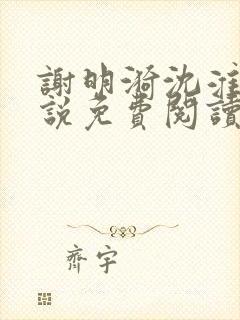 謝明漪沈淮
説免費閱讀
齊宇